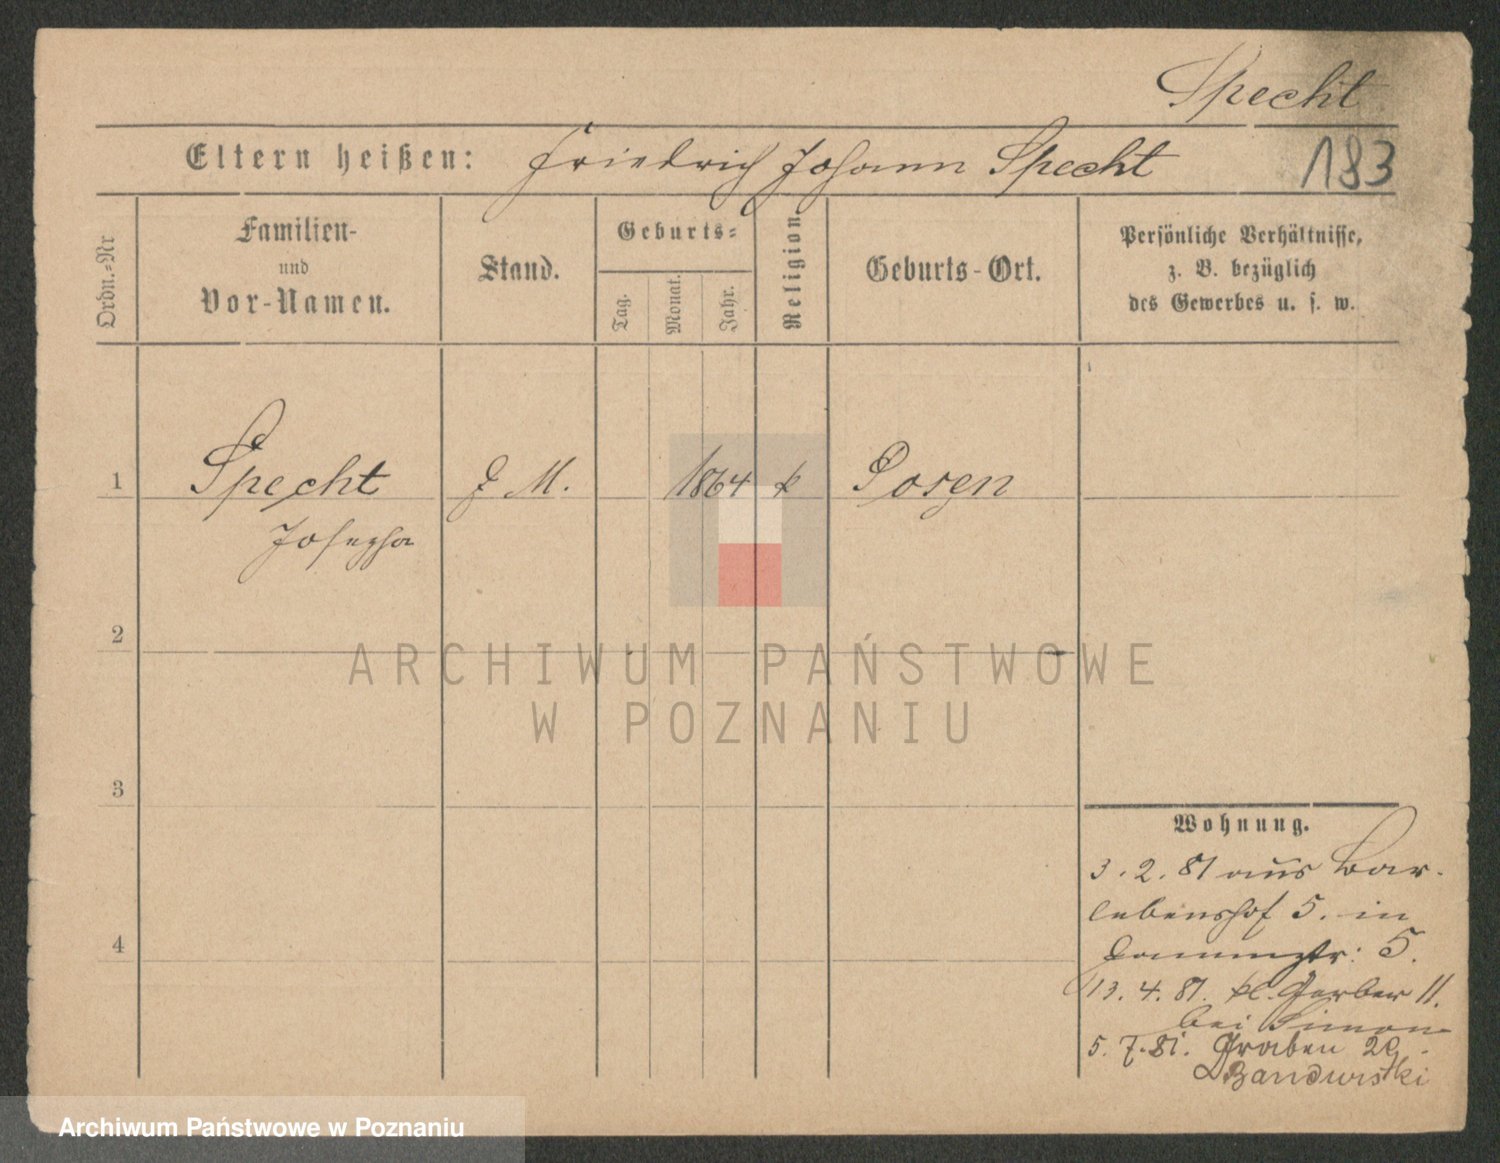 Specht
Eltern heißen: Friedrich Johann Specht 183
Ordn.-Nr
Familien-
und
Vor-Namen.
Stand.
Geburts-
Tag.
Monat.
Jahr.
Religion
Geburts-Ort.
Persönliche Verhältnisse,
z. B. bezüglich
des Gewerbes u. s. w.
1 Specht M. 1864 k Posen
Josepha
2
ARCHIWUM PAŃSTWOWE
W POZNANIU
3
Wohnung.
3. 2. 81 aus Bar-
lebenshof 5. in
5.
4
13. 4. 81. kl. Gerber 11.
bei Simon
5. 7. 81. Graben
Archiwum Państwowe w Poznaniu